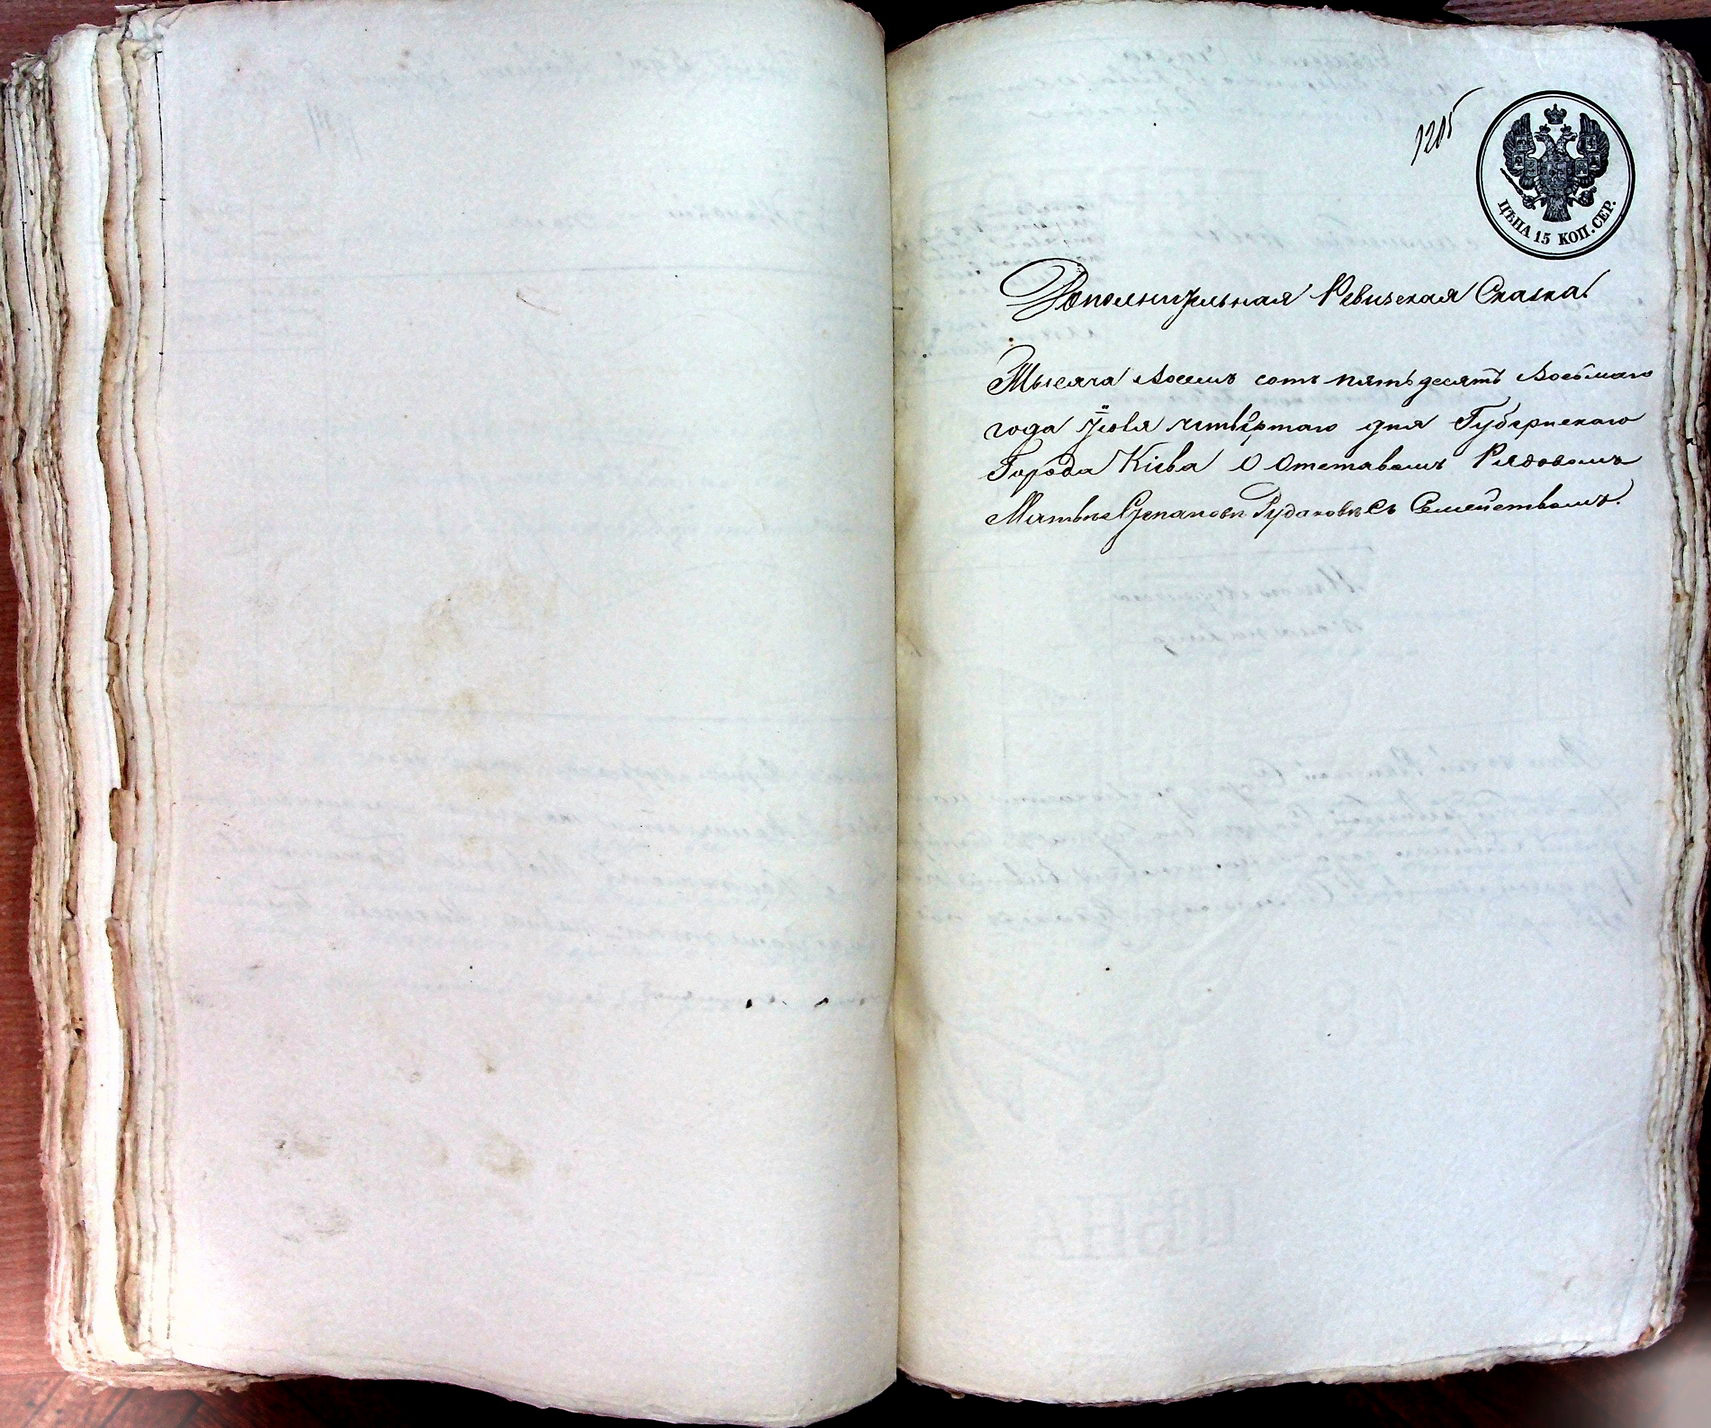 1205
ЦѢНА 15 КОП. СЕР.
Дополнительная Ревизская Сказка.
Тысяча восемь сотъ пятьдесятъ восьмаго
года Іюля четвѣртаго дня Губернскаго
Города Кіева О Отставомъ Рядовомъ
Матвѣе Степановѣ Рудаковѣ Съ Семействомъ.